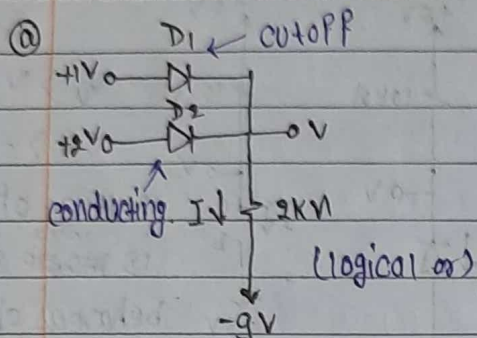 ⓐ D1 ← cutoff
+1V
D2
+2V V
conducting I↓ 2KΩ
(logical or)
-9V